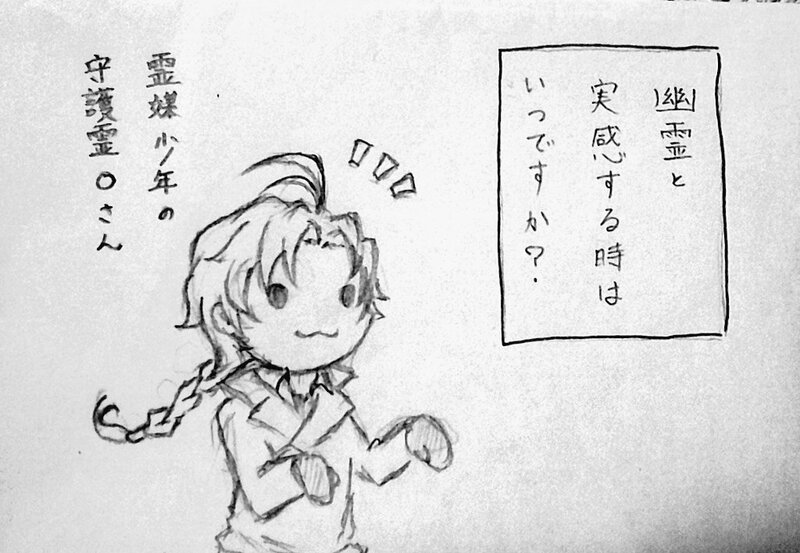 幽霊と
実感する時は
いつですか？
霊媒少年の
守護霊Oさん